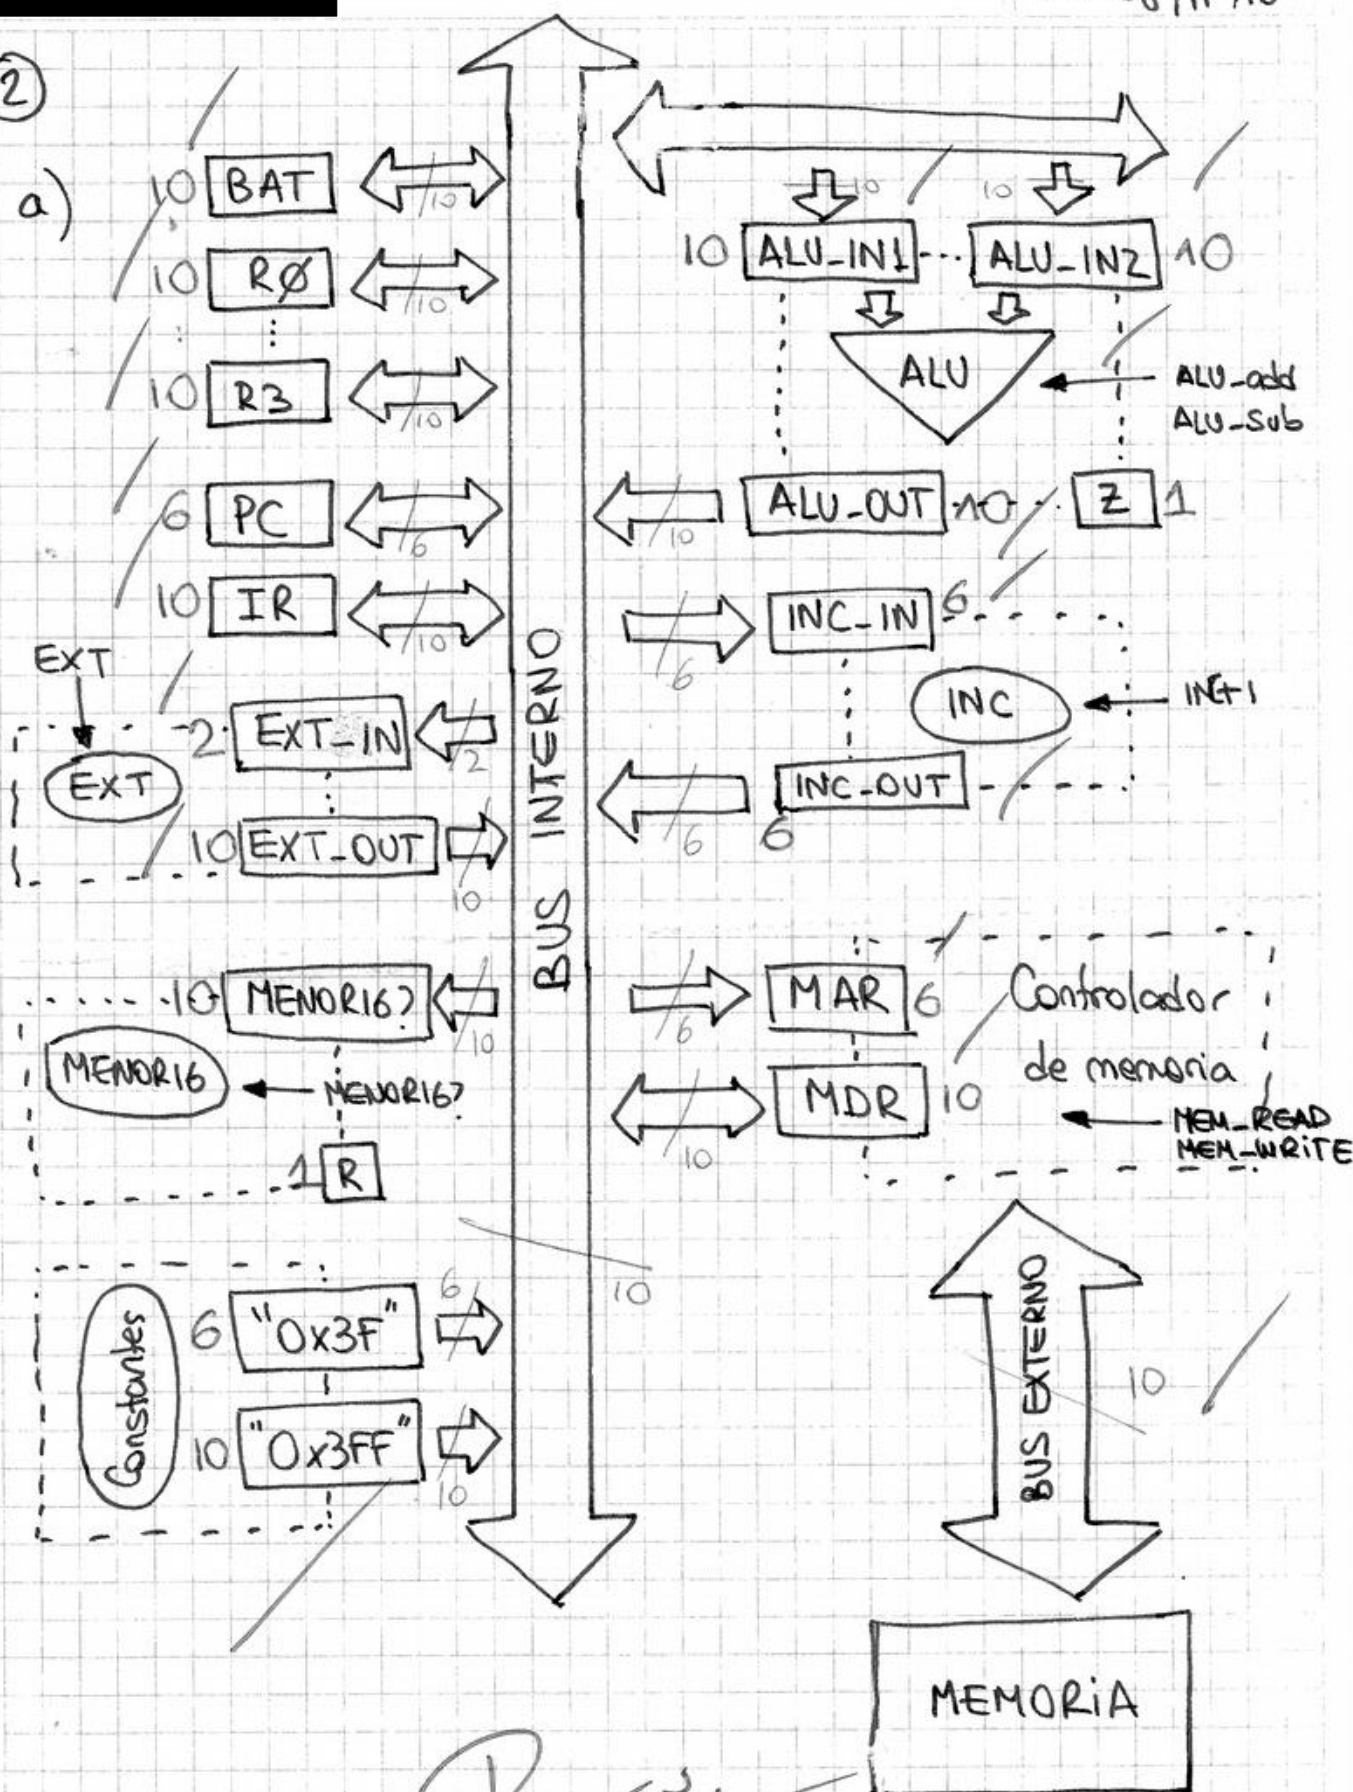 2
a)
10 BAT 10
10 RØ 10
10 R3 10
6 PC 6
10 IR 10
EXT
EXT
2 EXT_IN 2
10 EXT_OUT 10
10 MENOR16? 10
MENOR16
MENOR16?
1 R
Constantes
6 "0x3F" 6
10 "0x3FF" 10
BUS INTERNO
10
10 10
10 ALU_IN1 ALU_IN2 10
ALU
ALU_add
ALU_sub
10 ALU_OUT 10 Z 1
6 INC_IN 6
INC
INC+1
6 INC_OUT
6
6 MAR 6
Controlador
de memoria
10 MDR 10
MEM_READ
MEM_WRITE
BUS EXTERNO
10
MEMORIA